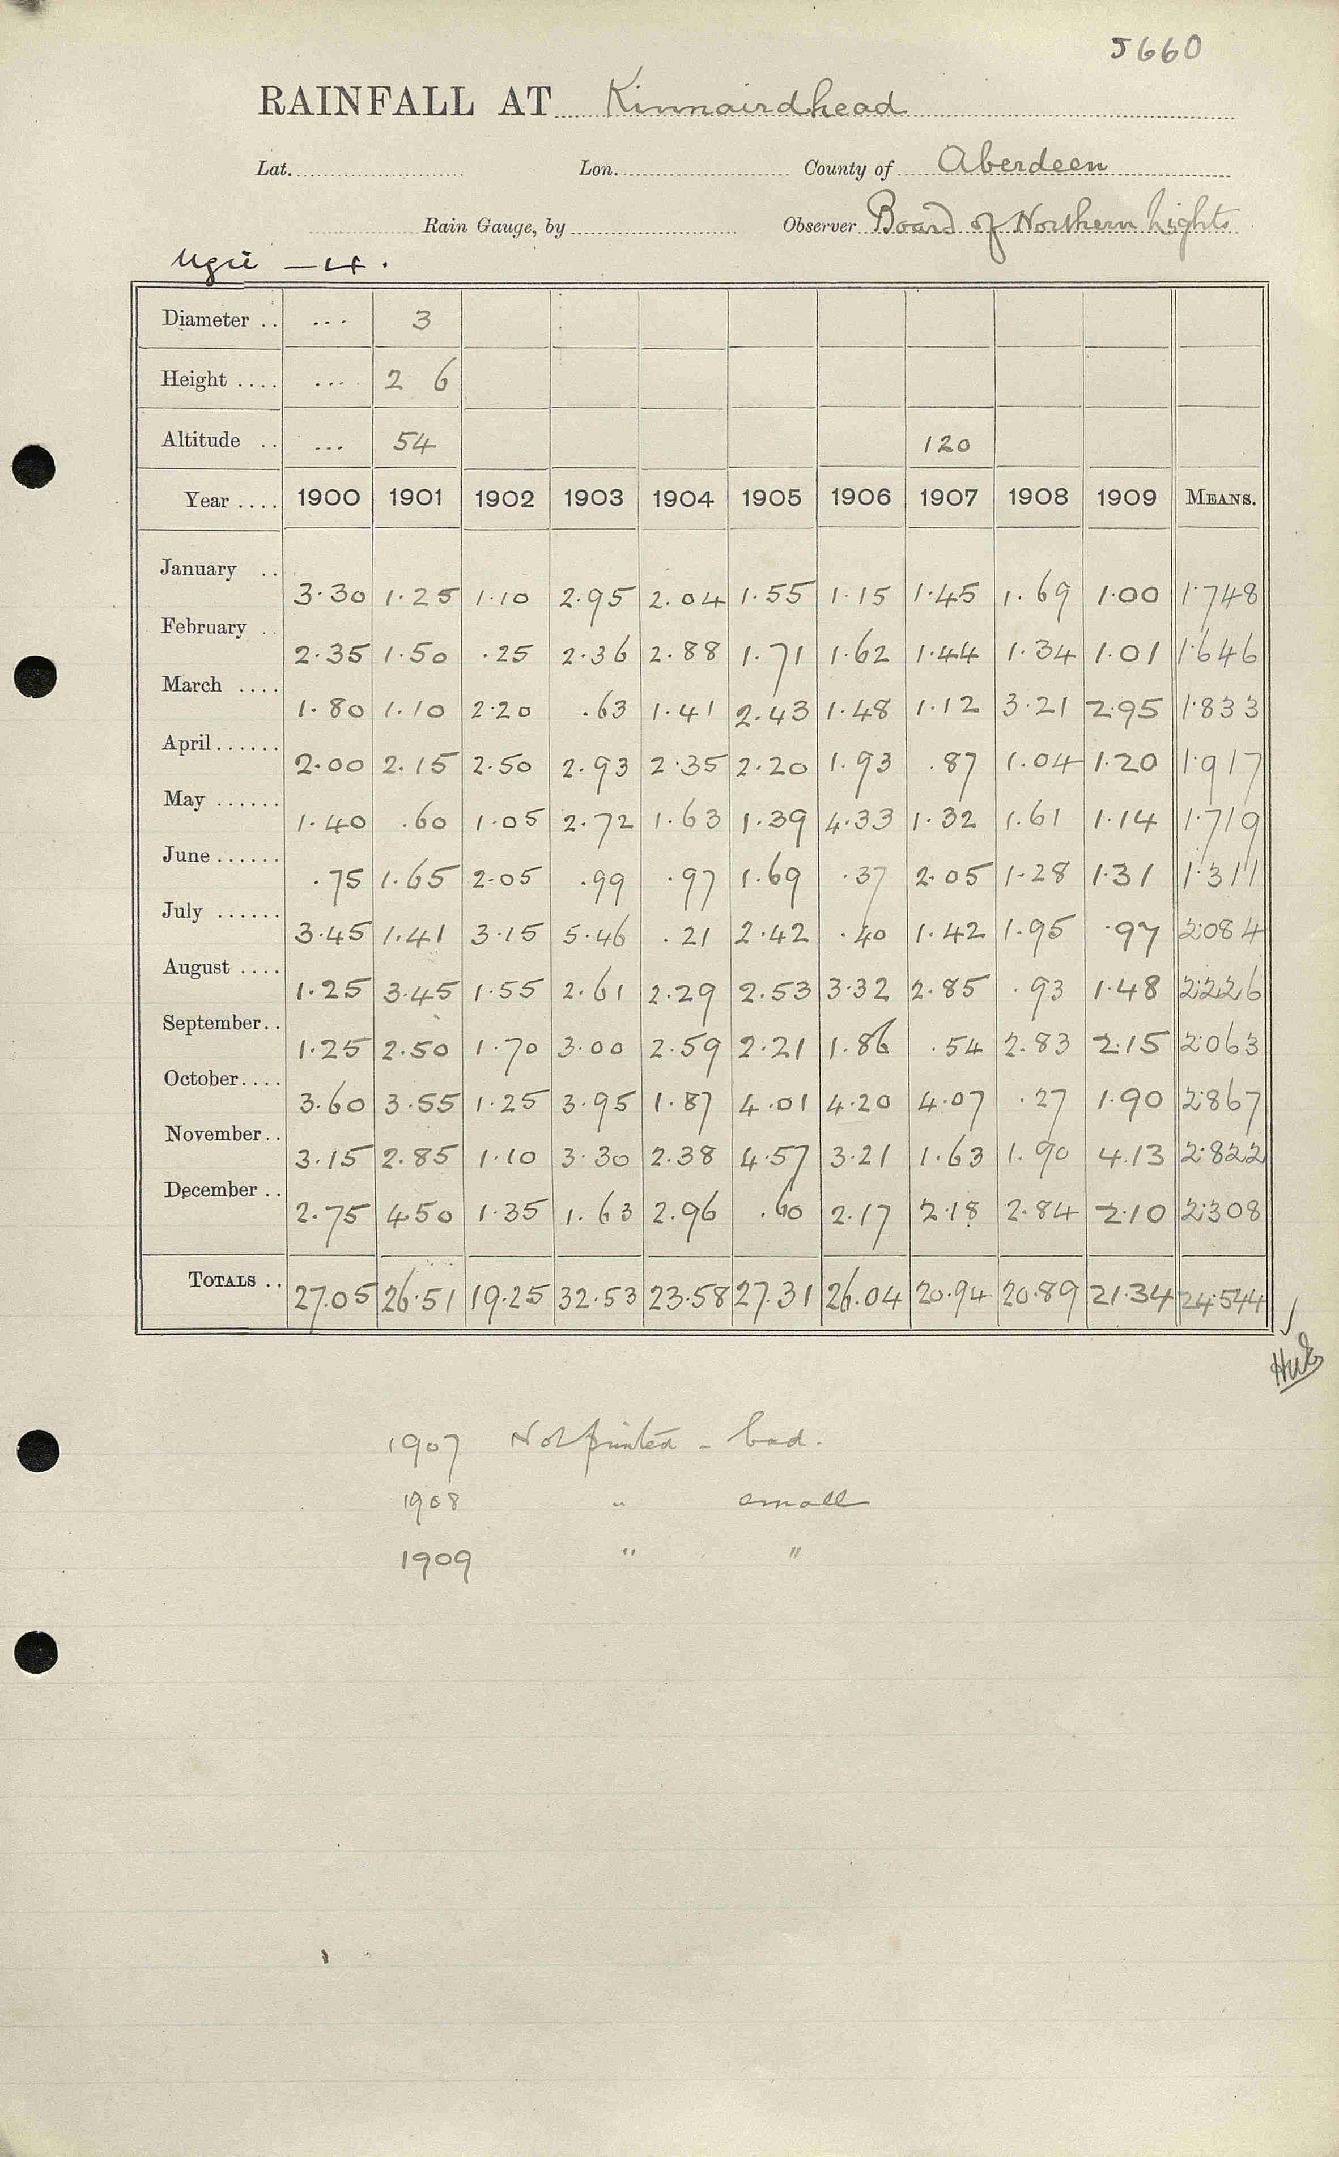 5660
RAINFALL AT Kinnairdhead
Lat. Lon. County of Aberdeen
Rain Gauge, by Observer Board of Northern Lights
Ugie — 14.
Diameter .. ... 3
Height .... ... 2 6
Altitude .. ... 54 120
Year .... 1900 1901 1902 1903 1904 1905 1906 1907 1908 1909 MEANS.
January .. 3.30 1.25 1.10 2.95 2.04 1.55 1.15 1.45 1.69 1.00 1.748
February .. 2.35 1.50 .25 2.36 2.88 1.71 1.62 1.44 1.34 1.01 1.646
March .... 1.80 1.10 2.20 .63 1.41 2.43 1.48 1.12 3.21 2.95 1.833
April...... 2.00 2.15 2.50 2.93 2.35 2.20 1.93 .87 1.04 1.20 1.917
May ...... 1.40 .60 1.05 2.72 1.63 1.39 4.33 1.32 1.61 1.14 1.719
June...... .75 1.65 2.05 .99 .97 1.69 .37 2.05 1.28 1.31 1.311
July ...... 3.45 1.41 3.15 5.46 .21 2.42 .40 1.42 1.95 .97 2.084
August .... 1.25 3.45 1.55 2.61 2.29 2.53 3.32 2.85 .93 1.48 2.226
September.. 1.25 2.50 1.70 3.00 2.59 2.21 1.86 .54 2.83 2.15 2.063
October.... 3.60 3.55 1.25 3.95 1.87 4.01 4.20 4.07 .27 1.90 2.867
November.. 3.15 2.85 1.10 3.30 2.38 4.57 3.21 1.63 1.90 4.13 2.822
December .. 2.75 4.50 1.35 1.63 2.96 .60 2.17 2.18 2.84 2.10 2.308
TOTALS .. 27.05 26.51 19.25 32.53 23.58 27.31 26.04 20.94 20.89 21.34 24.544
1907 Not printed - bad.
1908 " small
1909 " "